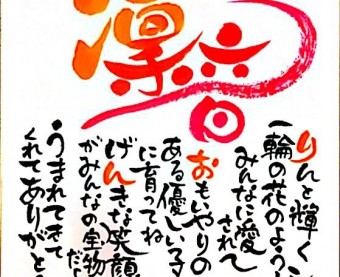 凛音
りんと輝く
一輪の花のよう
みんなに愛されて
おもいやりの
ある優しい子
に育ってね
げんきな笑顔
がみんなの宝物だ
・うまれてきて
くれてありがと